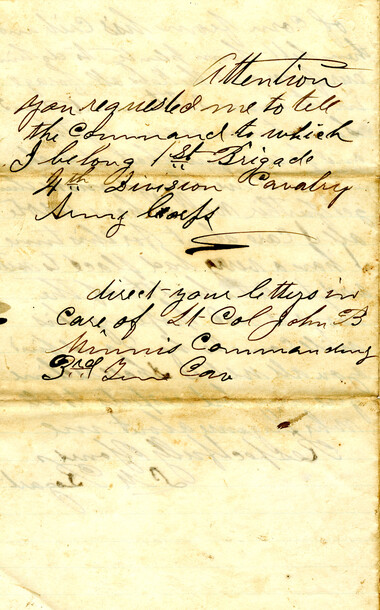 Attention
you requested me to tell
the Command to which
I belong 1st Brigade
4th Division Cavalry
Army Corps
direct your letters in
care of Lt Col John B
Minnis Commanding
3rd Tenn Cav